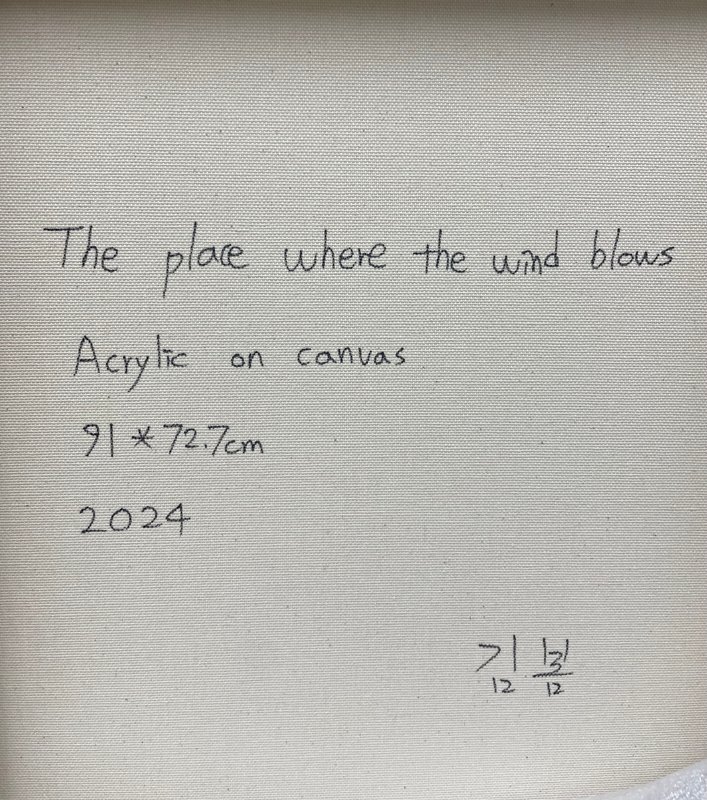 The place where the wind blows
Acrylic on canvas
91 * 72.7cm
2024
김